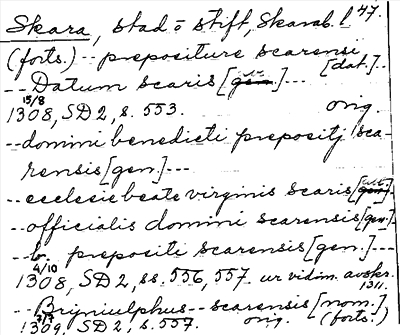 Skara, stad o stift, Skarab. l 47.
(forts.) -- prepositure scarensi [dat.]
-- Datum scaris [gen.] ---
15/8 1308, SD 2, s. 553. orig.
-- domini benedicti prepositj sca-
rensis [gen.] ---
-- ecclesie beate virginis scaris [gen.]
-- officialis domini scarensis [gen.]
b. prepositi scarensis [gen.] ---
4/10 1308, SD 2, ss. 556, 557 ur vidim. avskr. 1311.
-- Bryniulphus -- scarensis [nom.]
3/7 1309, SD 2, s. 557. orig. (forts.)